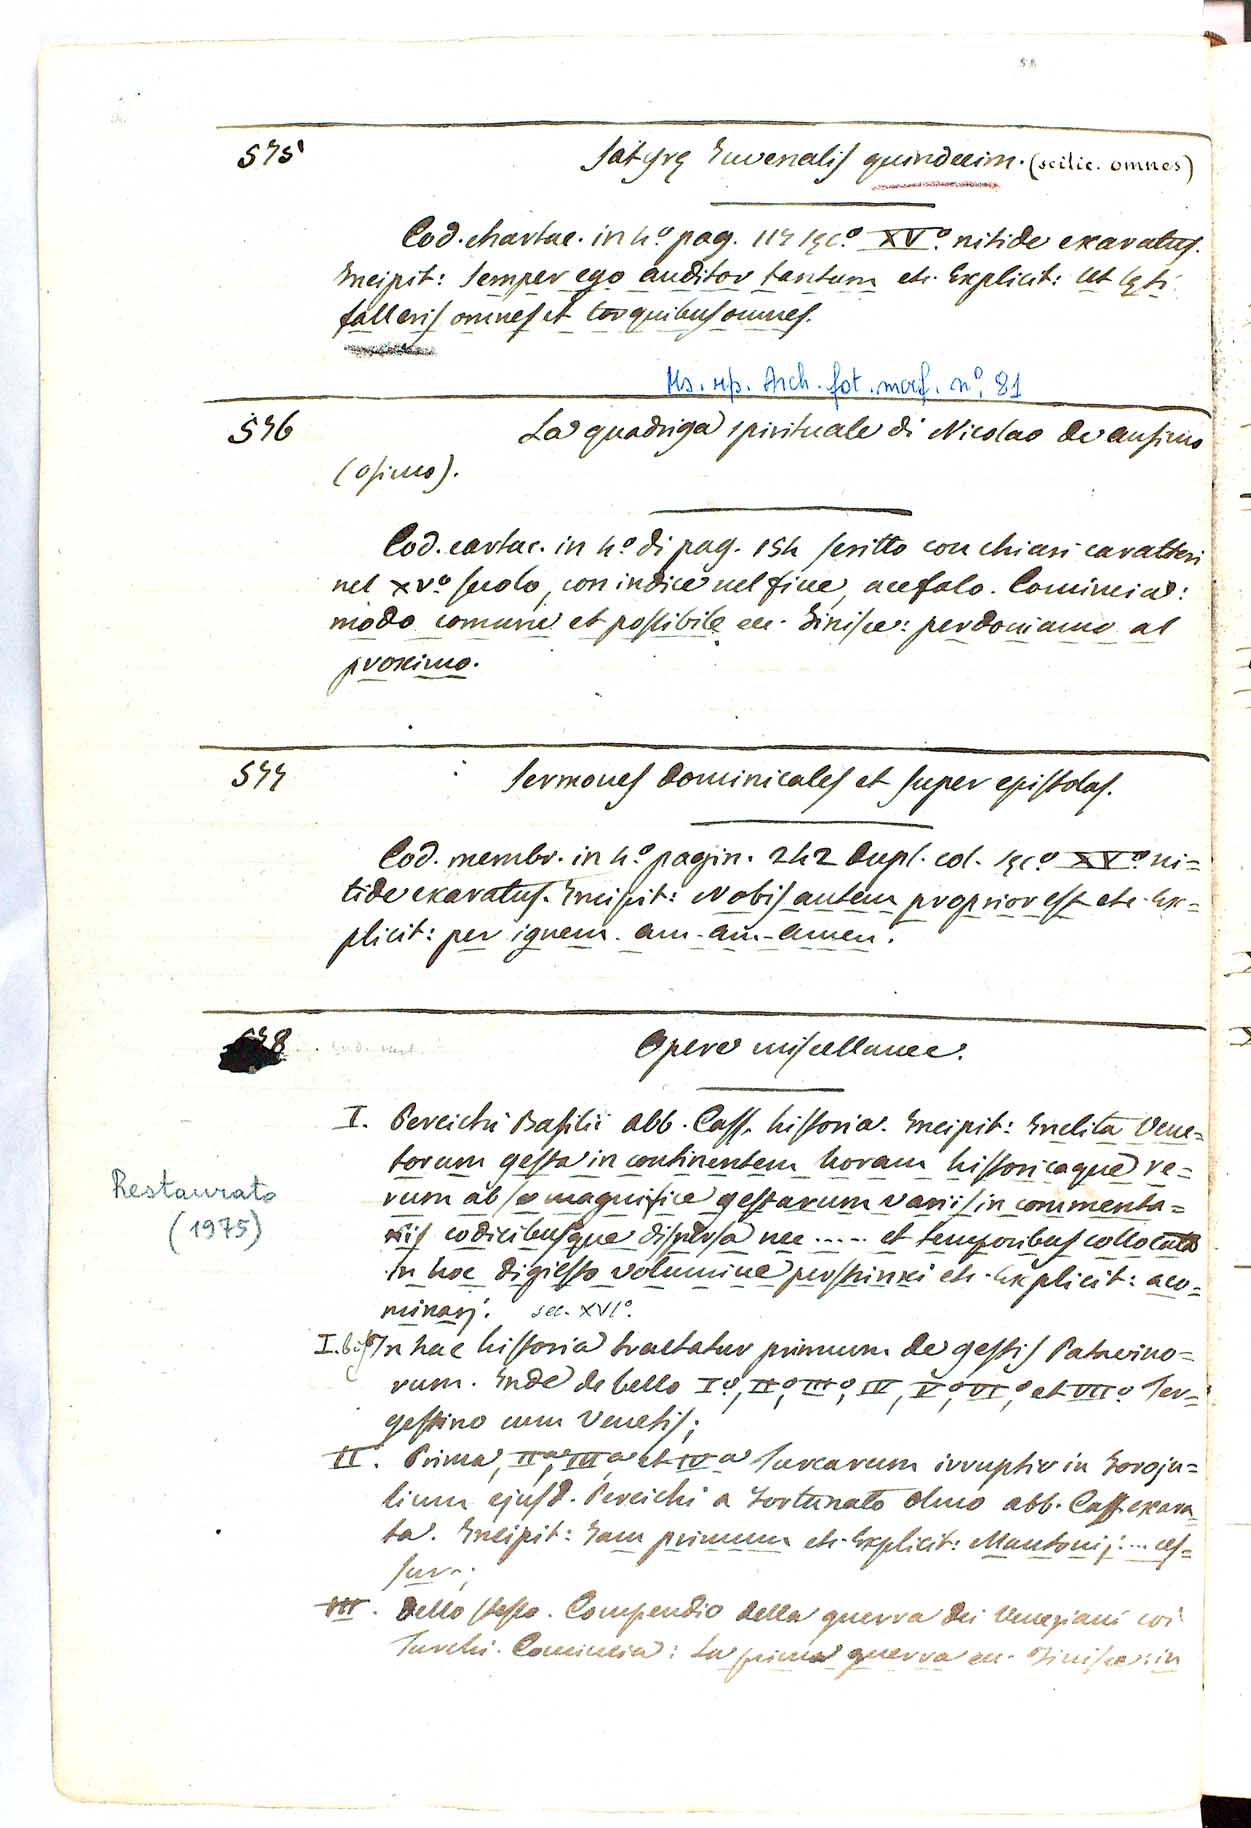 58
575
Satyrę Iuvenalis quindecim. (scilic. omnes)
Cod. chartac. in 4.º pag. 117 sęc.º XV.º nitide exaratus.
Incipit: Semper ego auditor tantum etc. Explicit: Ut lęti
falleris omnes et torquibus omnes.
Ms. rip. Arch. fot. marc. nº. 81
576
La quadriga spirituale di Nicolao de ausimo
(Osimo).
Cod. cartac. in 4.º di pag. 154 scritto con chiari caratteri
nel XV.º secolo, con indice nel fine, acefalo. Comincia:
modo comune et possibile ec. Finisce: perdoniamo al
proximo.
577
Sermones dominicales et super epistolas.
Cod. membr. in 4.º pagin. 242 dupl. col. sęc.º XV.º ni=
tide exaratus. Incipit: Nobis autem proprior est etc. Ex=
plicit: per ignem. am-am-amen.
578
Opere miscellanee.
I. Pereichii Basilii abb. Cass. historia. Incipit: Inclita Vene=
torum gesta in continentem horam historicaque re=
rum ab eo magnifice gestarum variis in commenta=
riis codicibusque dispersa nec ..... et temporibus collocata
in hoc digesto volumine perstrinxi etc. Explicit: aco=
minarj. sec. XVIº.
Restaurato
(1975)
I. bis In hac historia tractatur primum de gestis Patavino=
rum. Inde de bello Iº, IIº, IIIº, IV, Vº, VI,º et VII.º Ter=
gestino cum Venetis;
II. Prima, IIª, IIIª et IVª Turcarum irruptio in Foroju=
lium ejusd. Pereichi a Fortunato Olmo abb. Cass. exara
ta. Incipit: Iam primum etc. Explicit: Mantonij: ... ces=
sur.;
III. Dello stesso. Compendio della guerra dei Veneziani coi
Turchi. Comincia: La prima guerra ec. Finisce: in